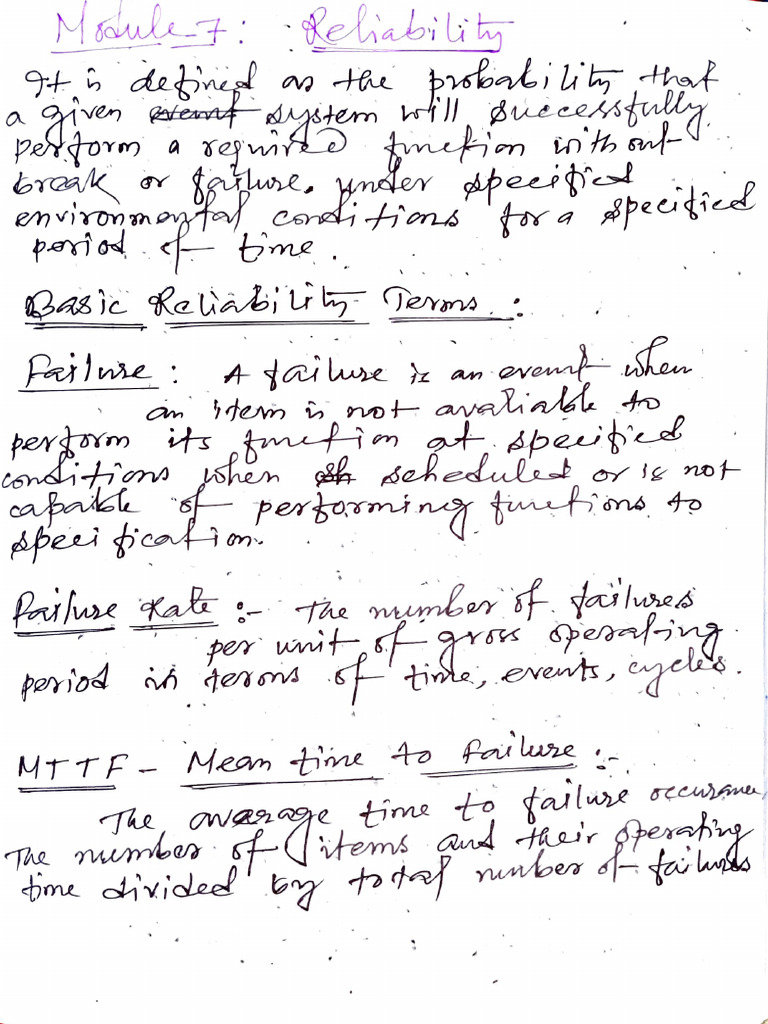 Module-7: Reliability
It is defined as the probability that
a given event system will successfully
perform a required function without
break or failure. under specified
environmental conditions for a specified
period of time.
Basic Reliability Terms :
Failure : A failure is an event when
an item is not avaliable to
perform its function at specified
conditions when sh scheduled or is not
capable of performing functions to
specification.
Failure Rate :- The number of failures
per unit of gross operating
period in terms of time, events, cycles.
MTTF - Mean time to failure :-
The average time to failure occurance,
The number of items and their operating
time divided by total number of failures